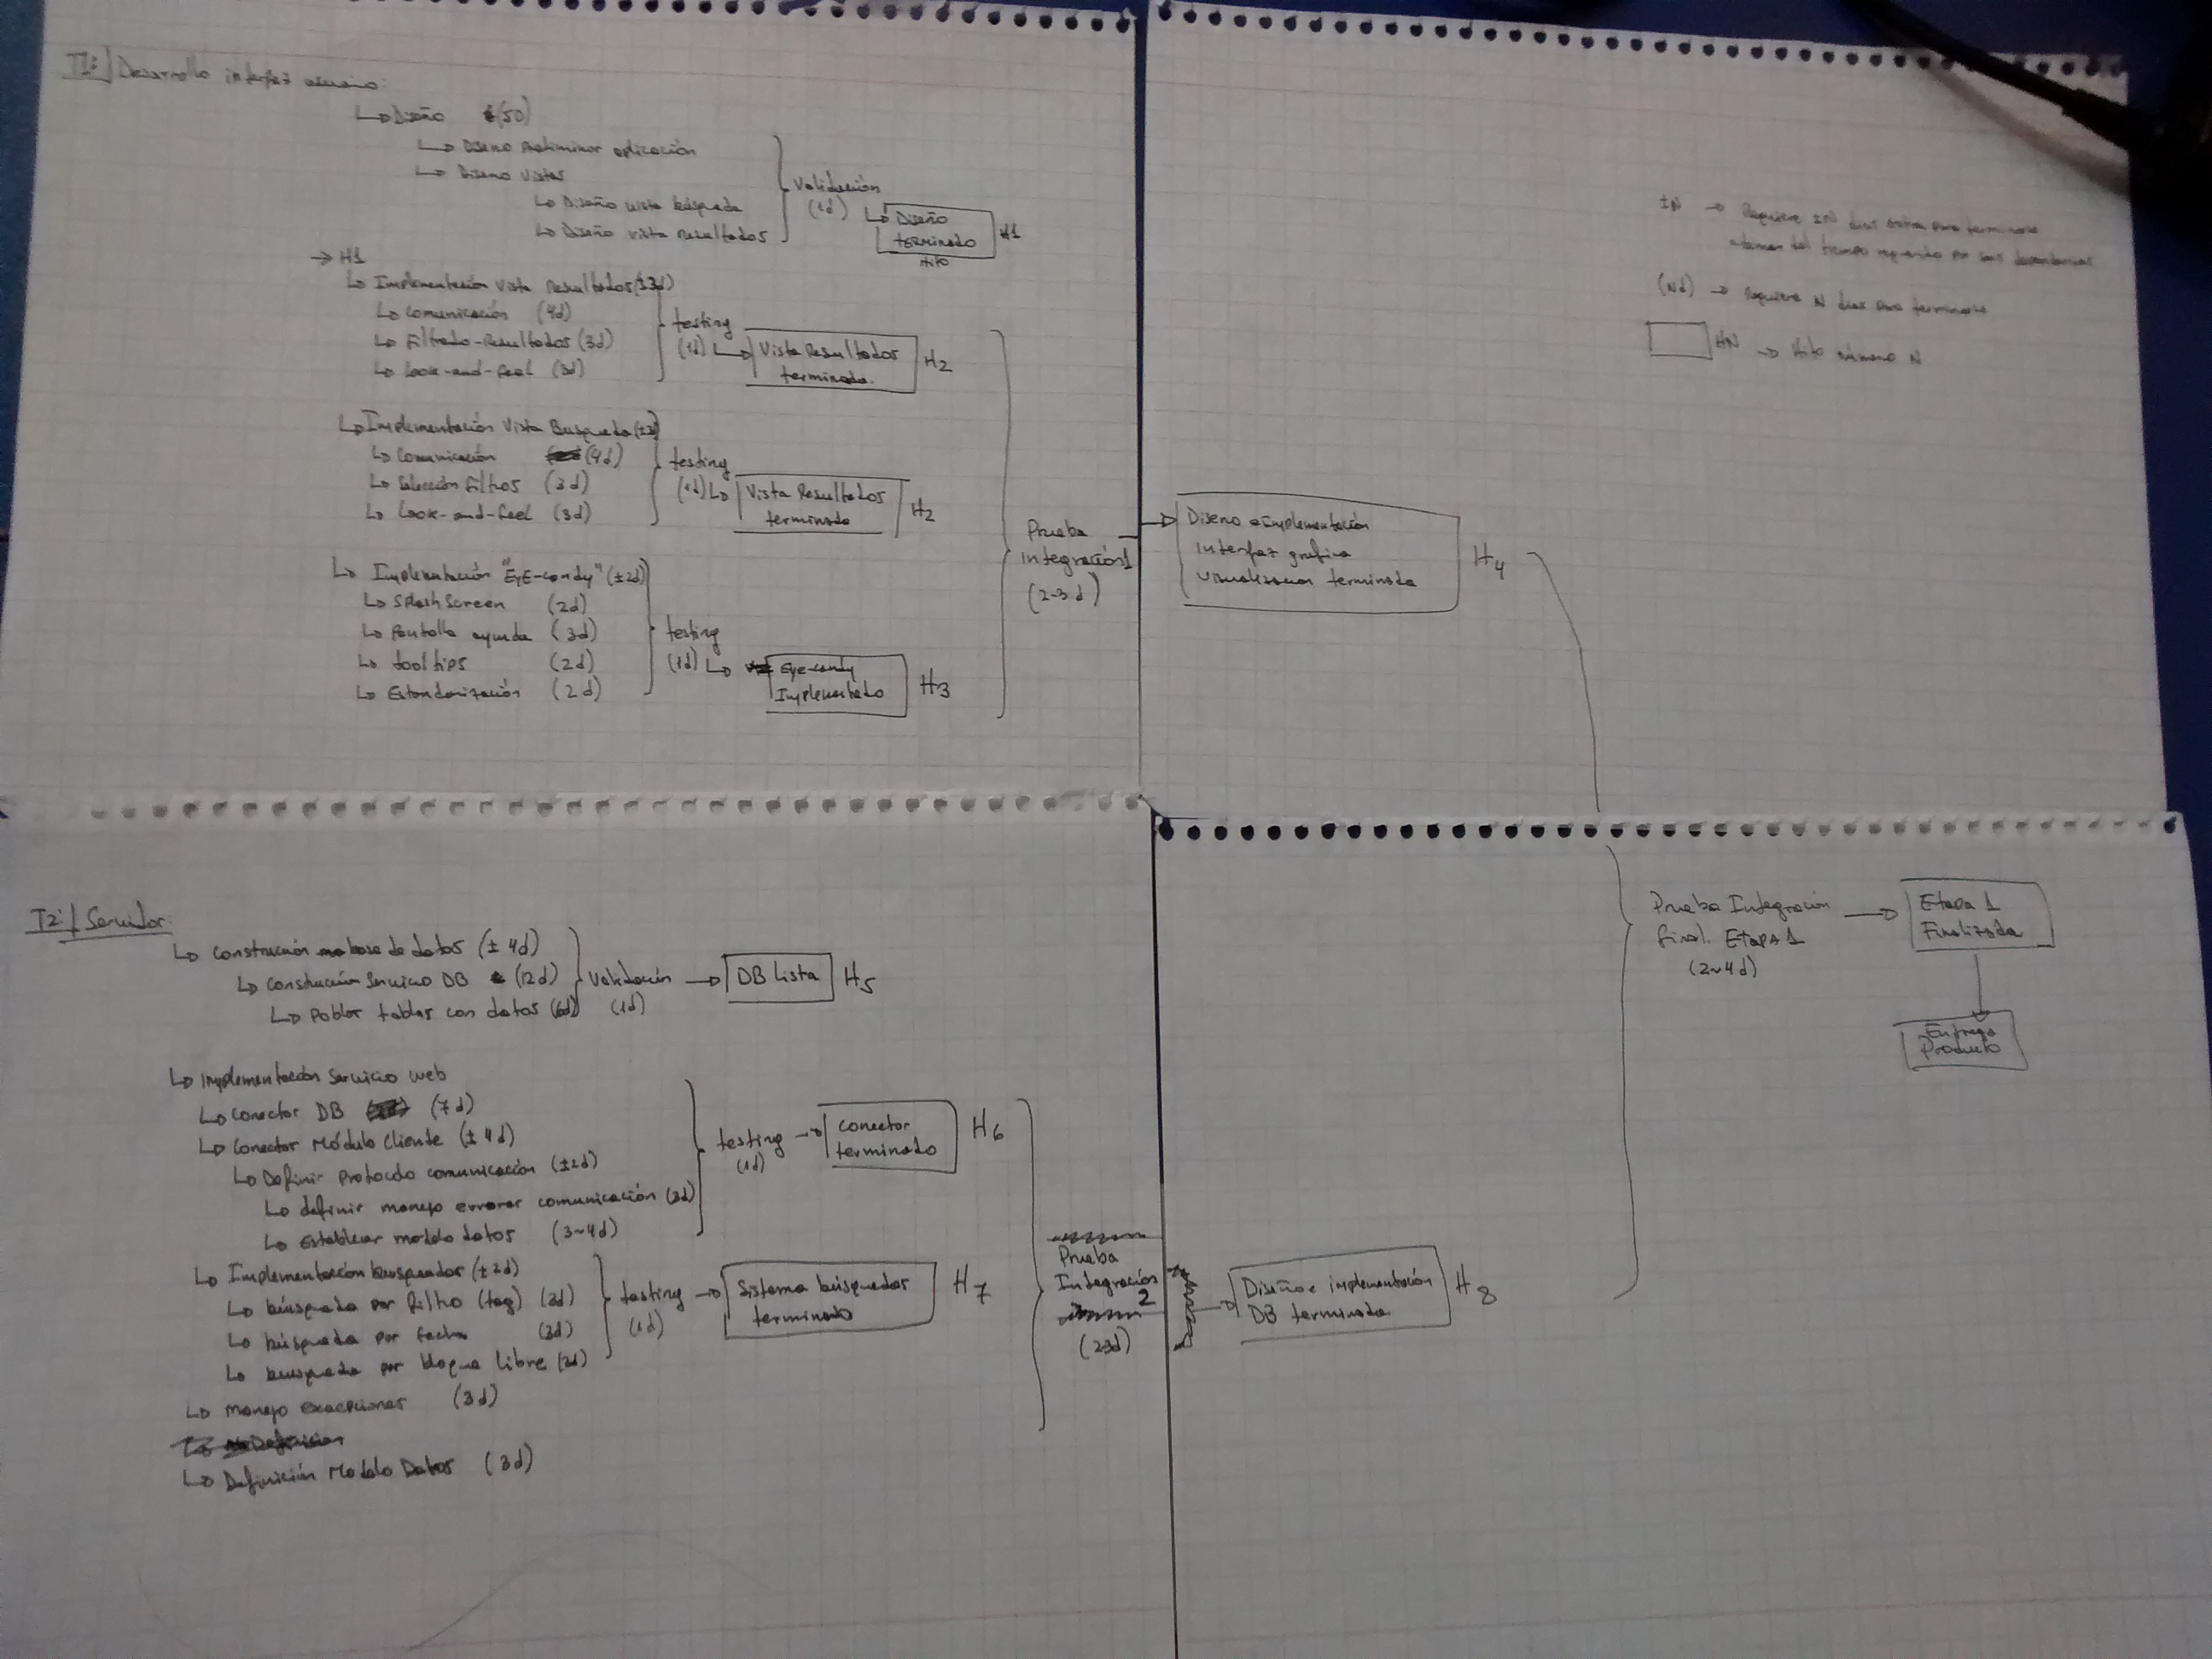 T1: Desarrollo interfaz usuario:
↳ Diseño (50)
↳ Diseño Preliminar aplicación
↳ Diseño Vistas
↳ Diseño vista búsqueda
↳ Diseño vista Resultados
Validación
(1d)
↳ Diseño
terminado
Hito
H1
→ H1
↳ Implementación Vista Resultados (±3d)
↳ Comunicación (4d)
↳ Filtrado-Resultados (3d)
↳ Look-and-feel (3d)
testing
(1d) ↳ Vista Resultados
terminada.
H2
↳ Implementación Vista Busqueda (±3)
↳ Comunicación (4d)
↳ Selección Filtros (3d)
↳ Look-and-feel (3d)
testing
(1d) ↳ Vista Resultados
terminada
H2
↳ Implementación "Eye-candy" (±2d)
↳ Splash Screen (2d)
↳ Pantalla ayuda (3d)
↳ tooltips (2d)
↳ Estandarización (2d)
testing
(1d) ↳ Eye-candy
Implementado
H3
Prueba
integración 1
(2-3d)
→ Diseño e implementación
Interfaz grafica
visualizacion terminada
H4
±N → Requiere ±N dias extra para terminarse
ademas del tiempo requerido por sus dependencias
(Nd) → Requiere N dias para terminarse
HN → Hito número N
T2: Servidor:
↳ Construcción base de datos (± 4d)
↳ Construcción Servicio DB (12d)
↳ Poblar tablas con datos (6d)
Validación
(1d)
→ DB Lista
H5
↳ Implementación Servicio web
↳ Conector DB (7d)
↳ Conector Módulo Cliente (± 4d)
↳ Definir Protocolo comunicación (±2d)
↳ definir manejo errores comunicación (3d)
↳ Establecer modelo datos (3~4d)
testing
(1d)
→ Conector
terminado
H6
↳ Implementación buscador (±2d)
↳ búsqueda por filtro (tag) (3d)
↳ búsqueda por fecha (3d)
↳ busqueda por bloque libre (3d)
testing
(1d)
→ Sistema búsquedas
terminado
H7
↳ Manejo excepciones (3d)
↳ Definición Modelo Datos (3d)
Prueba
Integración
2
(2-3d)
→ Diseño e implementación
DB terminada
H8
Prueba Integración
final. Etapa 1
(2~4d)
→ Etapa 1
Finalizada
Entrega
Producto